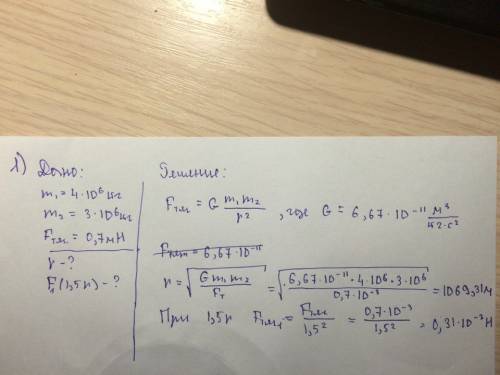 1) Дано:
m₁ = 4·10⁶ кг
m₂ = 3·10⁶ кг
Fтяг. = 0,7 мН
r - ?
F₁(1,5r) - ?
Решение:
Fтяг. = G m₁m₂/r² , где G = 6,67·10⁻¹¹ м³/кг·с²
Fтяг = 6,67·10⁻¹¹
r = √(G m₁m₂/Fт) = √(6,67·10⁻¹¹·4·10⁶·3·10⁶/0,7·10⁻³) = 1069,31м
При 1,5r Fтяг₁ = Fтяг/1,5² = 0,7·10⁻³/1,5² = 0,31·10⁻³Н